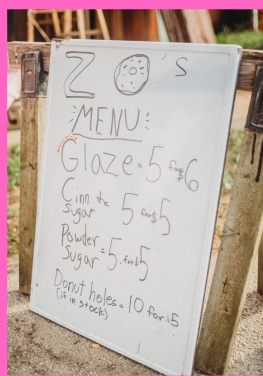 ZO's
MENU
Glaze = 5 for $6
Cinn + Sugar = 5 for $5
Powder Sugar = 5 for $5
Donut holes = 10 for $5
(if in stock)